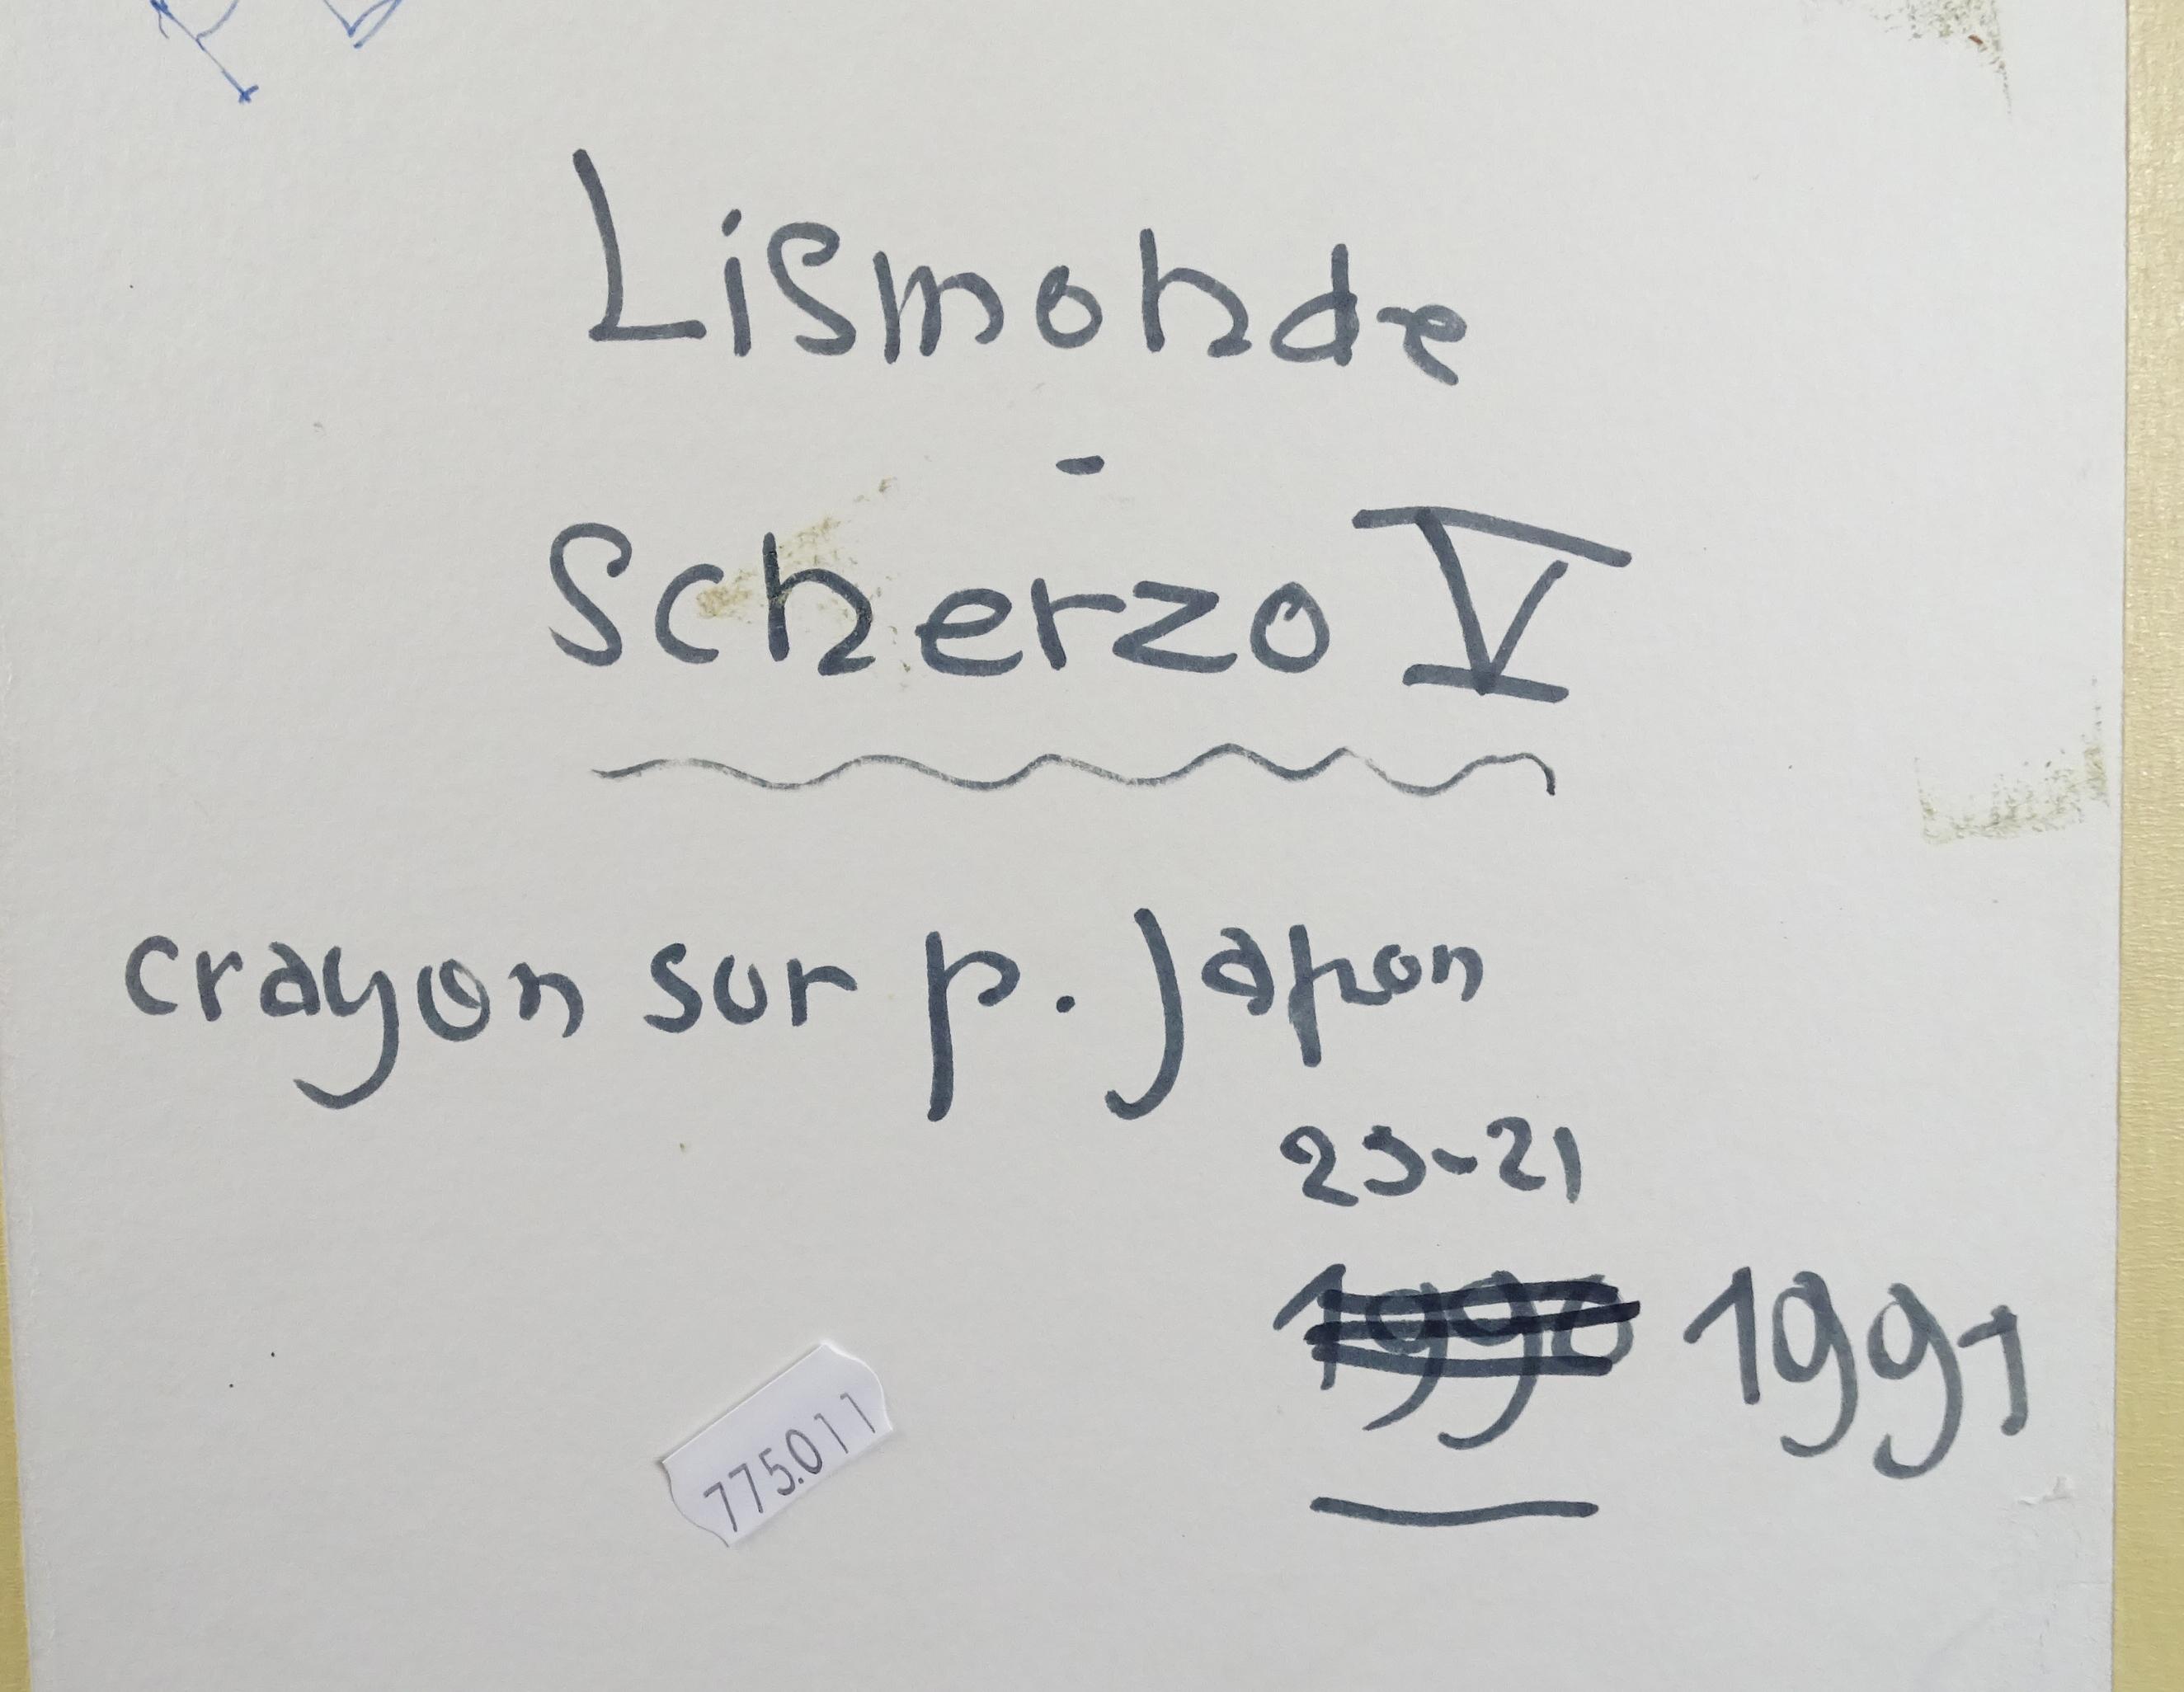 Lismonde
-
Scherzo V
crayon sur p. Japon
25-21
1990 1991
775.011